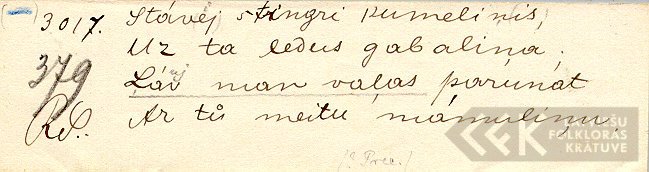 3017. Stāvēj stingri kumelinis,
Uz ta ledus gabaliņa.
379 Ļāv nuj man vaļas parunāt
Rd. Ar to meitu māmuliņu.
(? Prec.)
LFK LATVIEŠU
FOLKLORAS
KRĀTUVE